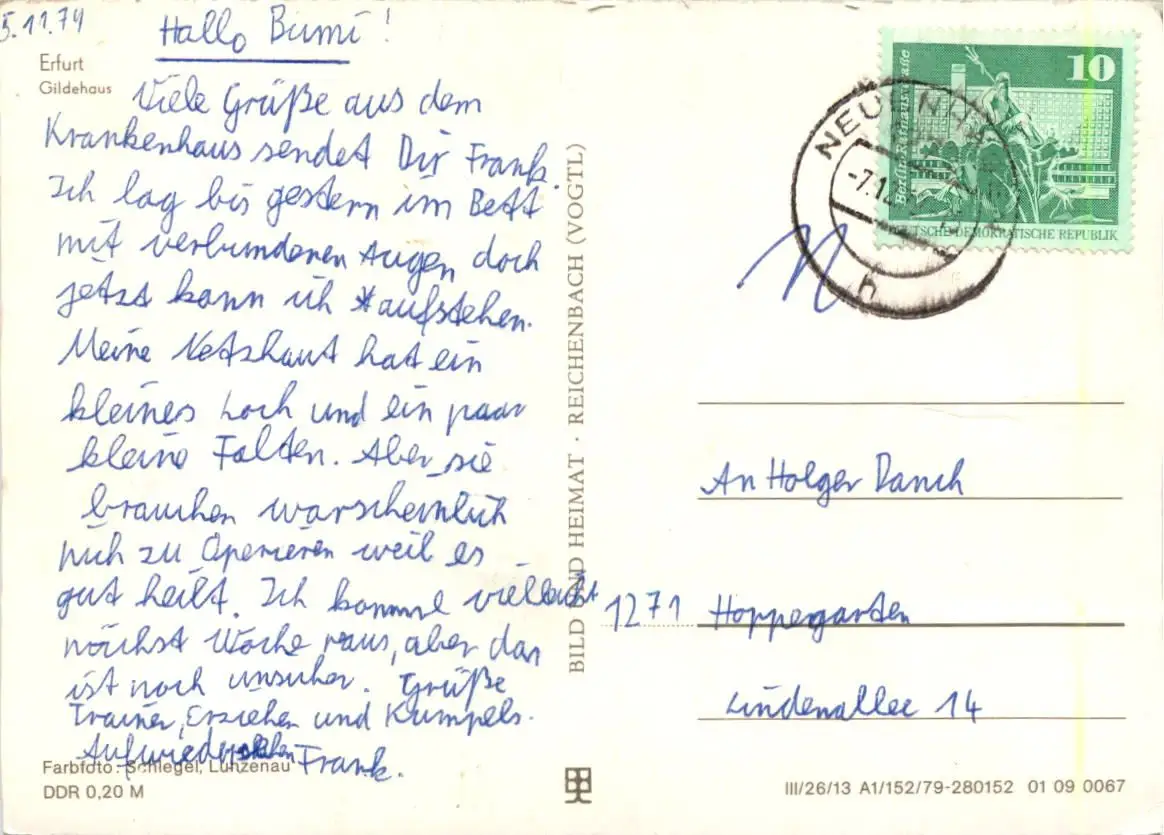 5.11.79
Hallo Bumi!
Erfurt
Gildehaus
Viele Grüße aus dem
Krankenhaus sendet Dir Frank.
Ich lag bis gestern im Bett
mit verbundenen Augen doch
jetzt kann ich aufstehen.
Meine Netzhaut hat ein
kleines Loch und ein paar
kleine Falten. Aber sie
brauchen warscheinlich
nich zu Operieren weil es
gut heilt. Ich komme villeicht
nächst Woche raus, aber das
ist noch unsicher. Grüße
Trainer, Erzieher und Kumpels.
Aufwiedersehen Frank.
Farbfoto: Schlegel, Lunzenau
DDR 0,20 M
BILD UND HEIMAT · REICHENBACH (VOGTL)
10
Berlin-Rathausstraße
DEUTSCHE DEMOKRATISCHE REPUBLIK
NEUENH
-7.1
h
An Holger Danch
1271 Hoppegarten
Lindenallee 14
III/26/13 A1/152/79-280152 01 09 0067